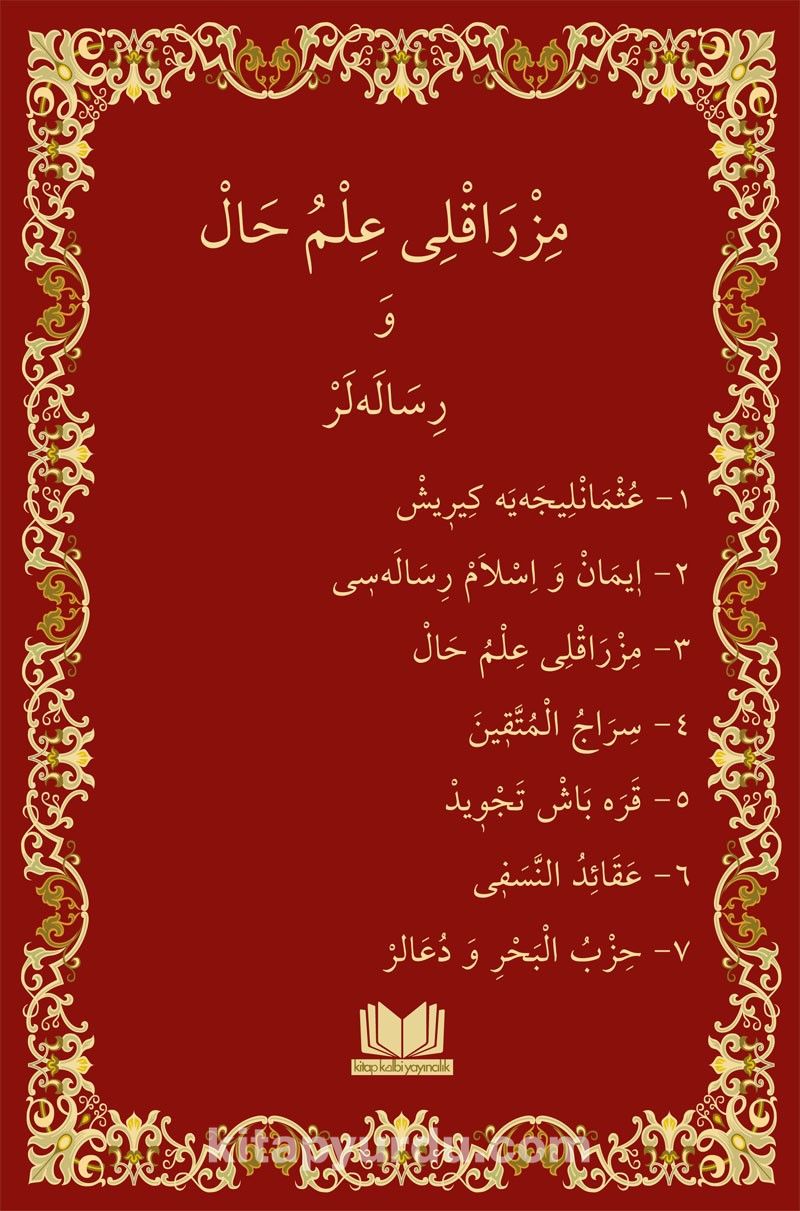 مِزْرَاقْلِى عِلْمُ حَالْ
وَ
رِسَالَه‌لَرْ
١- عُثْمَانْلِيجَه‌يَه كِيرِيشْ
٢- اِيمَانْ وَ اِسْلَامْ رِسَالَه‌سِى
٣- مِزْرَاقْلِى عِلْمُ حَالْ
٤- سِرَاجُ الْمُتَّقِينَ
٥- قَرَه بَاشْ تَجْوِيدْ
٦- عَقَائِدُ النَّسَفِى
٧- حِزْبُ الْبَحْرِ وَ دُعَالَرْ
kitap kalbi yayıncılık
kitapyurdu.com